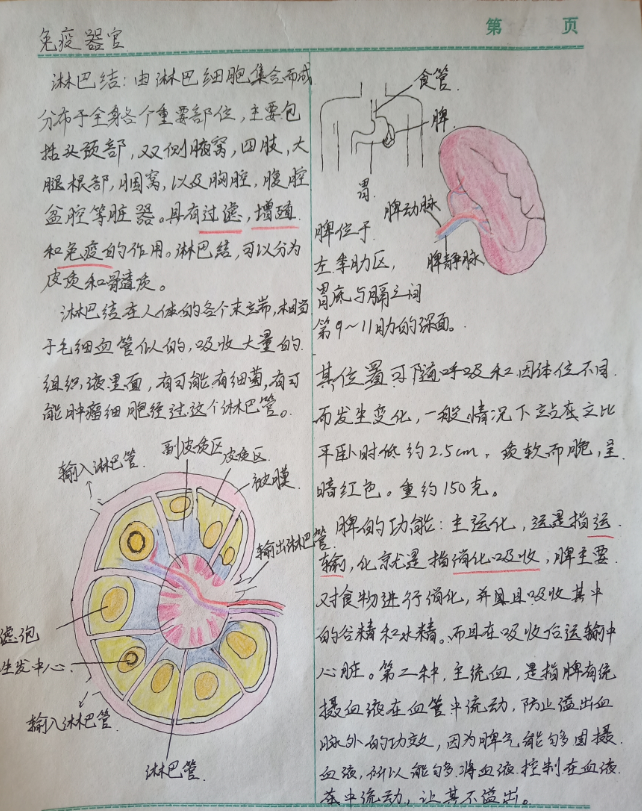 第 页
免疫器官
淋巴结：由淋巴细胞集合而成
分布于全身各个重要部位，主要包
括头颈部，双侧腋窝，四肢，大
腿根部，腘窝，以及胸腔，腹腔
盆腔等脏器。具有过滤，增殖
和免疫的作用。淋巴结，可以分为
皮质和髓质。
淋巴结在人体的各个末端，相当
于毛细血管似的，吸收大量的
组织，液里面，有可能有细菌，有可
能肿瘤细胞经过这个淋巴管。
输入淋巴管
副皮质区
皮质区
被膜
输出淋巴管
滤泡
生发中心
输入淋巴管
淋巴管
食管
脾
胃
脾动脉
脾静脉
脾位于
左季肋区，
胃底与膈之间
第9～11肋的深面。
其位置可随呼吸和因体位不同
而发生变化，一般情况下站在立比
平卧时低约2.5cm，质软而脆，呈
暗红色。重约150克。
脾的功能：主运化，运是指运
输，化就是指消化吸收，脾主要
对食物进行消化，并且吸收其中
的谷精和水精。而且在吸收后运输中
心脏。第二种，主统血，是指脾有统
摄血液在血管中流动，防止溢出血
脉外的功效，因为脾气能够固摄
血液，所以能够将血液控制在血液
中流动，让其不溢出。